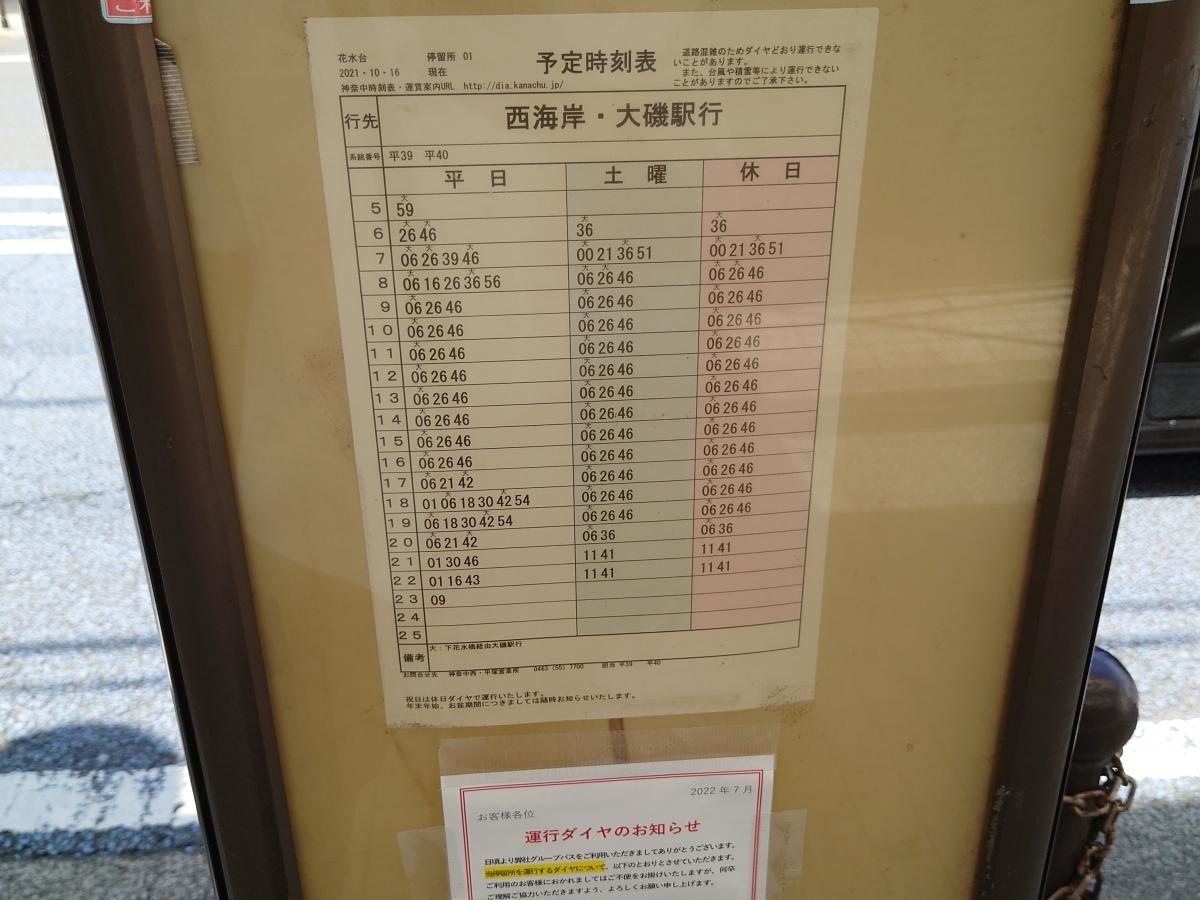 花水台 停留所 01 予定時刻表
2021・10・16 現在
神奈中時刻表・運賃案内URL http://dia.kanachu.jp/
道路混雑のためダイヤどおり運行できな
いことがあります。
また、台風や積雪等により運行できない
ことがありますのでご了承下さい。
行先 西海岸・大磯駅行
系統番号 平39 平40
平 日 土 曜 休 日
大
5 59
大 大 大 大
6 26 46 36 36
大 大 大 大 大
7 06 26 39 46 00 21 36 51 00 21 36 51
大 大 大 大 大 大
8 06 16 26 36 56 06 26 46 06 26 46
大 大 大
9 06 26 46 06 26 46 06 26 46
大 大 大
10 06 26 46 06 26 46 06 26 46
大 大 大
11 06 26 46 06 26 46 06 26 46
大 大 大
12 06 26 46 06 26 46 06 26 46
大 大 大
13 06 26 46 06 26 46 06 26 46
大 大 大
14 06 26 46 06 26 46 06 26 46
大 大 大
15 06 26 46 06 26 46 06 26 46
大 大 大
16 06 26 46 06 26 46 06 26 46
大 大 大 大
17 06 21 42 06 26 46 06 26 46
大 大 大 大
18 01 06 18 30 42 54 06 26 46 06 26 46
大 大 大 大
19 06 18 30 42 54 06 26 46 06 26 46
大 大 大 大
20 06 21 42 06 36 06 36
21 01 30 46 11 41 11 41
22 01 16 43 11 41 11 41
23 09
24
25
備考 大：下花水橋経由大磯駅行
お問合せ先 神奈中西・平塚営業所 0463 (55) 7700 担当 平39 平40
祝日は休日ダイヤで運行いたします。
年末年始、お盆期間につきましては随時お知らせいたします。
2022年7月
お客様各位
運行ダイヤのお知らせ
日頃より弊社グループバスをご利用いただきましてありがとうございます。
当停留所を運行するダイヤについて、以下のとおりとさせていただきます。
ご利用のお客様におかれましてはご不便をお掛けいたしますが、何卒
ご理解ご協力いただきますよう、よろしくお願い申し上げます。